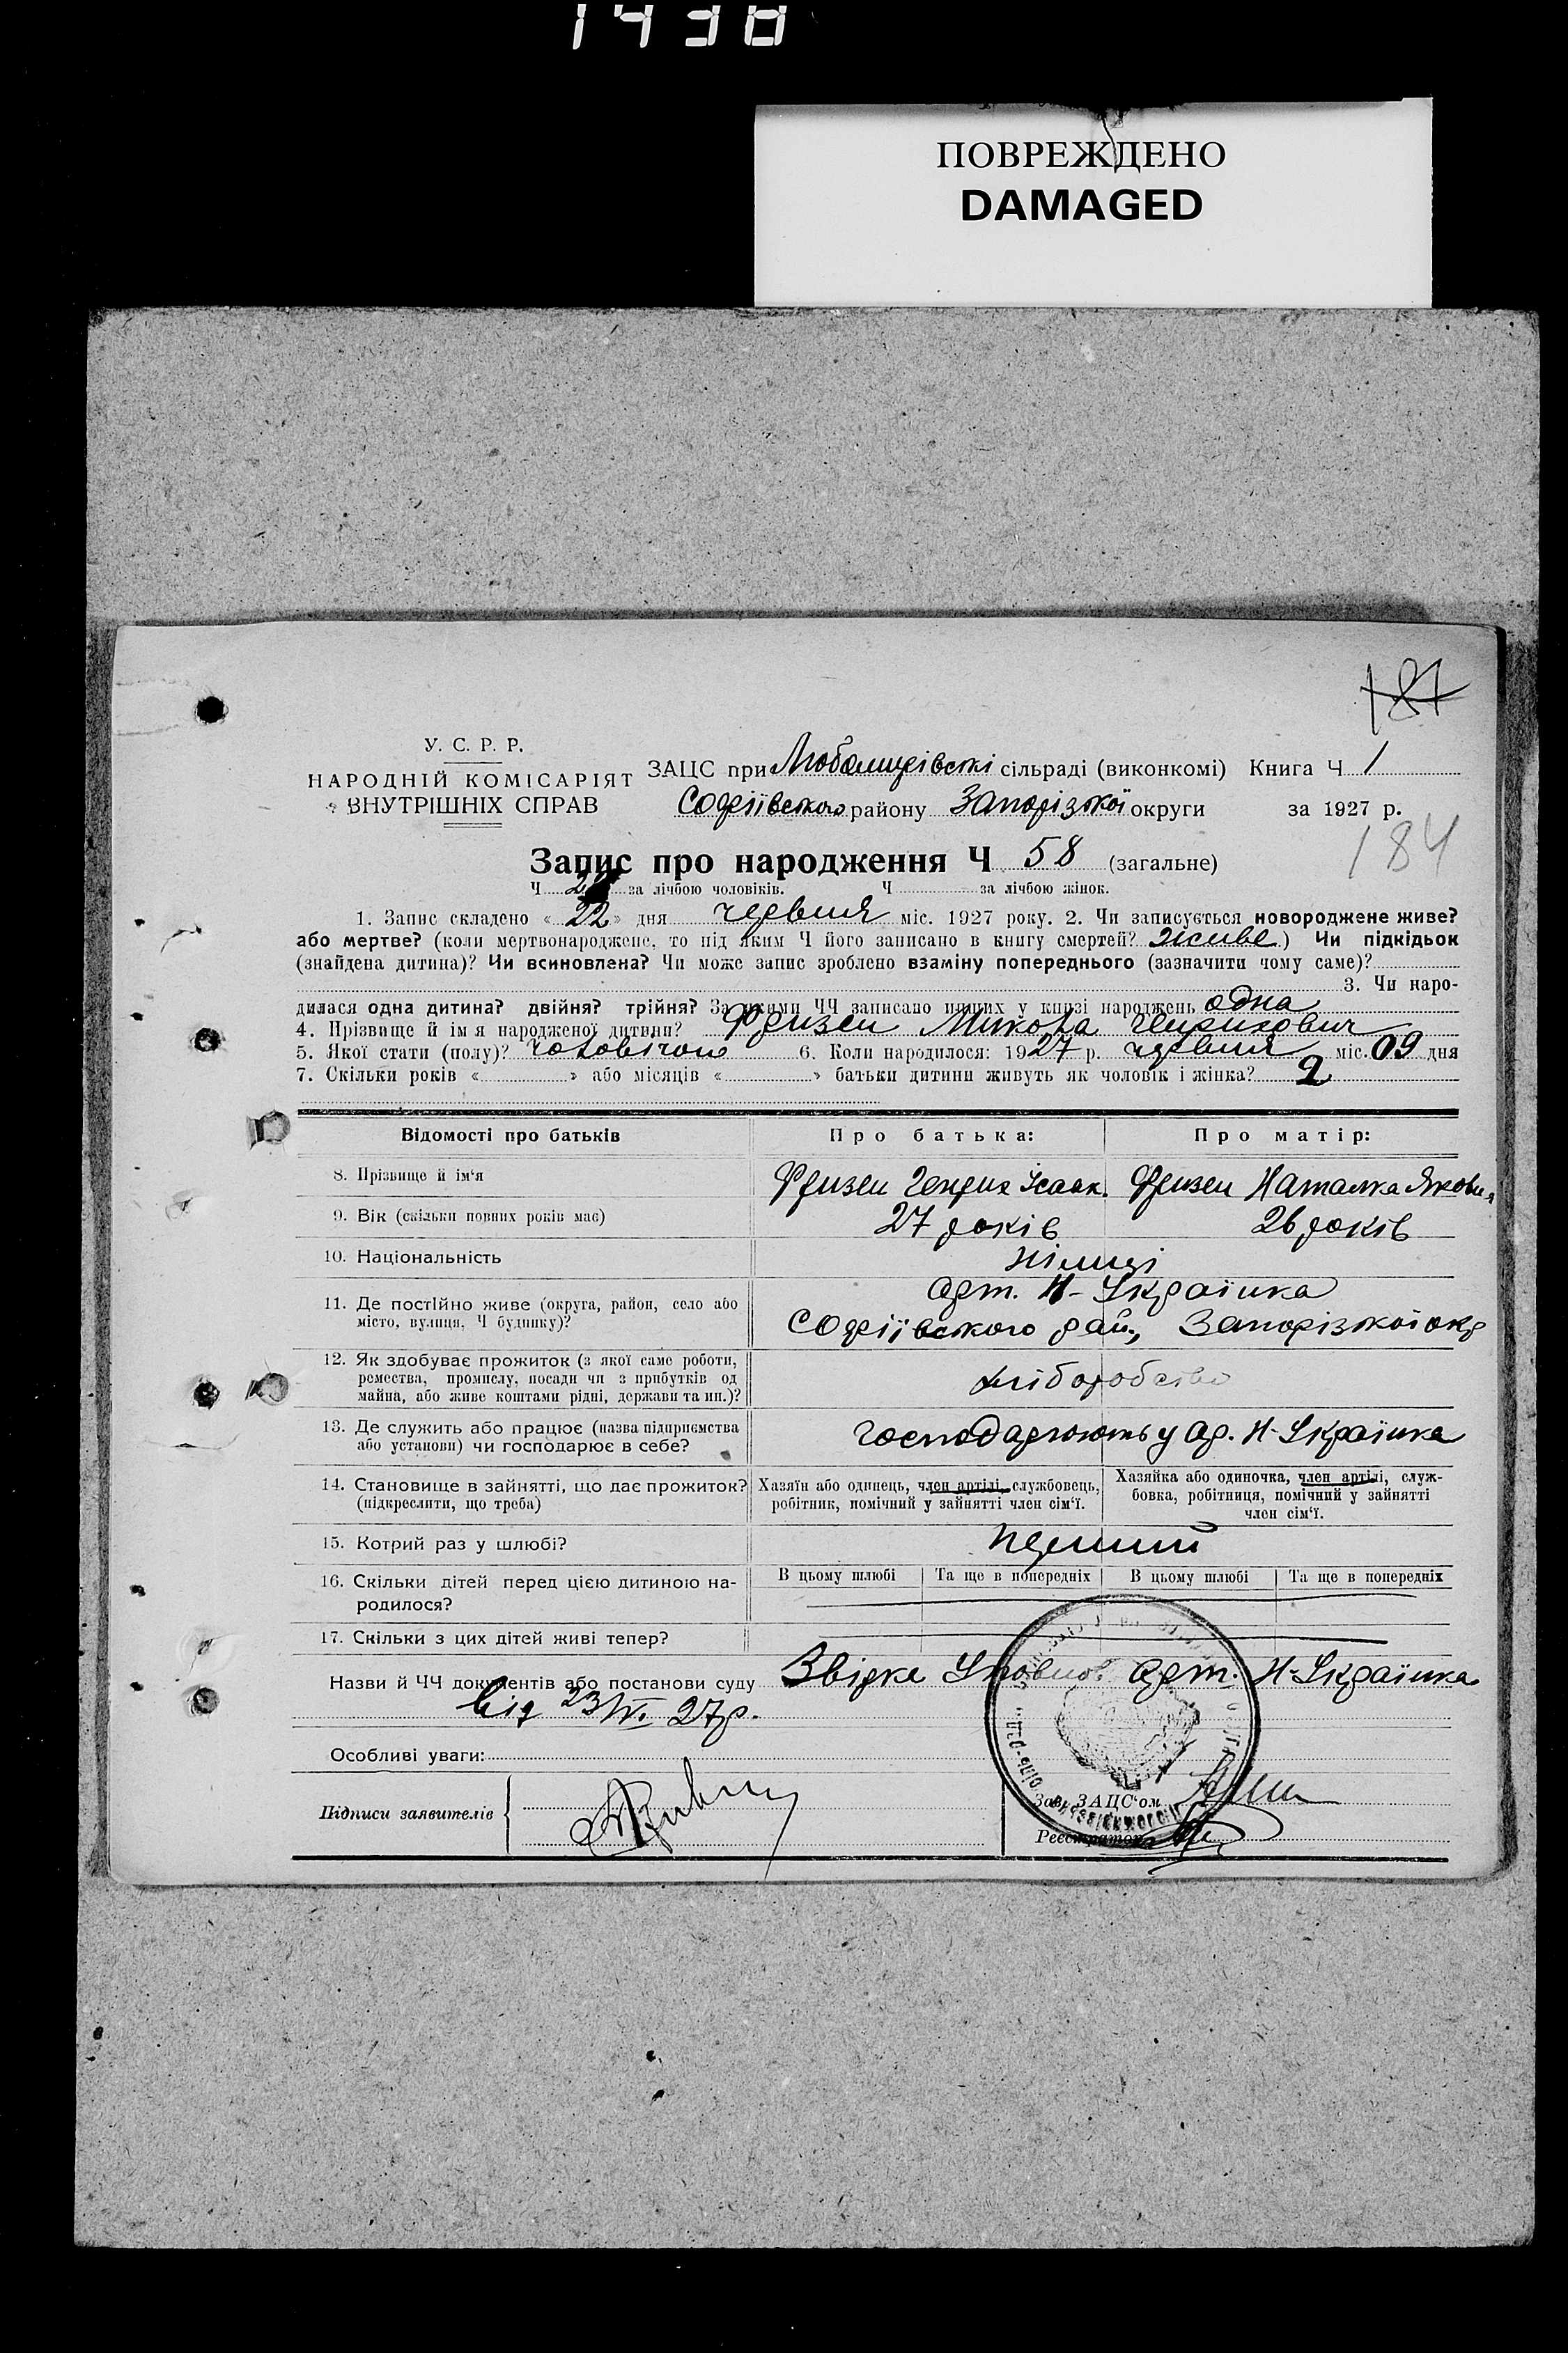 1430
ПОВРЕЖДЕНО
DAMAGED
187
У. С. Р. Р.
НАРОДНІЙ КОМІСАРІЯТ
ВНУТРІШНІХ СПРАВ
ЗАЦС при Любомирівські сільраді (виконкомі) Книга Ч 1
Софіївського району Запорізької округи за 1927 р.
184
Запис про народження Ч 58 (загальне)
Ч за лічбою чоловіків. Ч за лічбою жінок.
1. Запис складено « 22 » дня червня міс. 1927 року. 2. Чи записується новороджене живе?
або мертве? (коли мертвонароджене, то під яким Ч його записано в книгу смертей? живе) Чи підкідьок
(знайдена дитина)? Чи всиновлена? Чи може запис зроблено взаміну попереднього (зазначити чому саме)?
3. Чи наро-
дилася одна дитина? двійня? трійня? За якими ЧЧ записано инших у книзі народжень одна
4. Прізвище й ім я народженої дитини? Фризен Микола Генрихович
5. Якої стати (полу)? чоловічои 6. Коли народилося: 1927 р. червня міс. 09 дня
7. Скільки років « » або місяців « » батьки дитини живуть як чоловік і жінка? 2
Відомості про батьків Про батька: Про матір:
8. Прізвище й ім‘я Фризен Генрих Ісаак. Фризен Наталка Яковл
9. Вік (скільки повних років має) 27 років 26 років
10. Національність німці
11. Де постійно живе (округа, район, село або
місто, вулиця, Ч будинку)?
арт. Н-Українка
Софіївського рай., Запорізької окр
12. Як здобуває прожиток (з якої саме роботи,
ремества, промислу, посади чи з прибутків од
майна, або живе коштами рідні, держави та ин.)?
хліборобство
13. Де служить або працює (назва підприємства
або установи) чи господарює в себе?
господарюють у ар. Н-Українка
14. Становище в зайнятті, що дає прожиток?
(підкреслити, що треба)
Хазяїн або одинець, член артілі, службовець,
робітник, помічний у зайнятті член сім‘ї.
Хазяйка або одиночка, член артілі, служ-
бовка, робітниця, помічний у зайнятті
член сім‘ї.
15. Котрий раз у шлюбі? перший
16. Скільки дітей перед цією дитиною на-
родилося?
В цьому шлюбі Та ще в попередніх В цьому шлюбі Та ще в попередніх
17. Скільки з цих дітей живі тепер?
Назви й ЧЧ документів або постанови суду Звірка Уповнов. арт. Н-Українка
від 23/VI. 27р.
Особливі уваги:
Підписи заявителів
Зав. ЗАЦС‘ом
Реєстратор